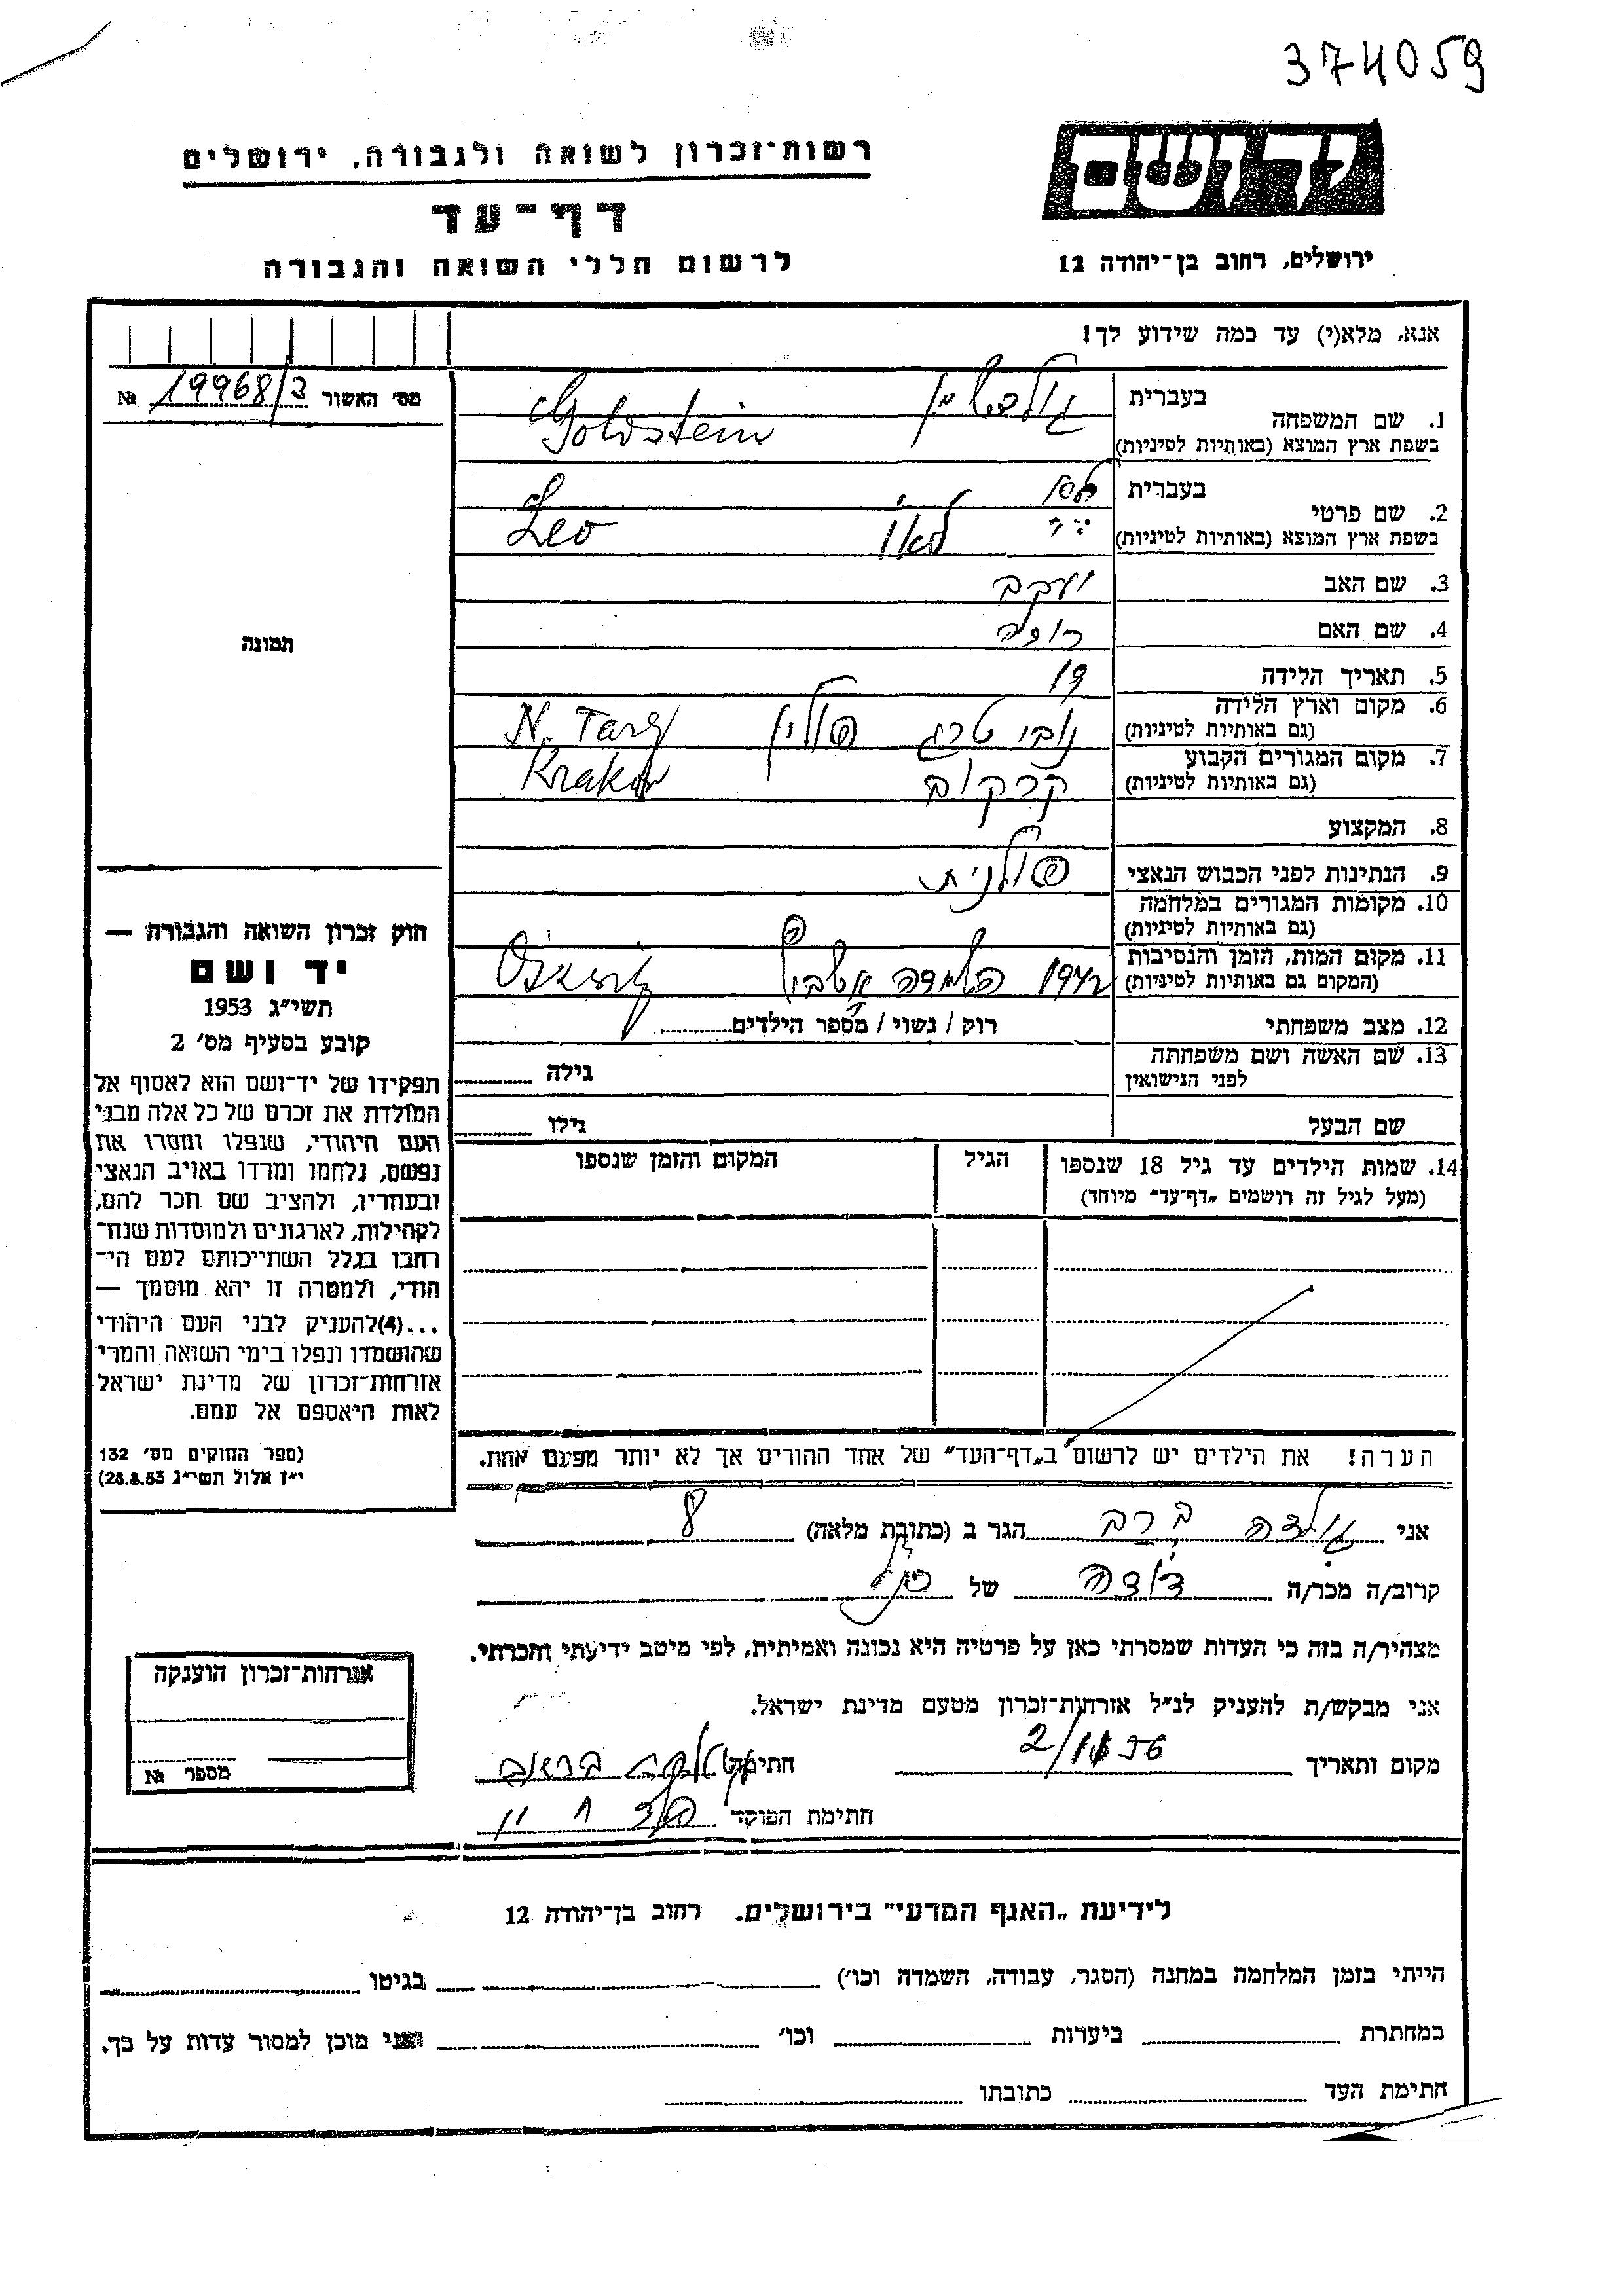 374059
יד ושם
רשות־זכרון לשואה ולגבורה, ירושלים
דף־עד
לרשום חללי השואה והגבורה
ירושלים, רחוב בן־יהודה 12
אנא, מלא(י) עד כמה שידוע לך!
מס׳ האשור 19968/3 №
1. שם המשפחה
בעברית גולדשטיין
בשפת ארץ המוצא (באותיות לטיניות) Goldstein
2. שם פרטי
בעברית
בשפת ארץ המוצא (באותיות לטיניות) לאו Leo
3. שם האב יעקב
4. שם האם
5. תאריך הלידה 19
6. מקום וארץ הלידה נובי טרג פולין N. Targ
(גם באותיות לטיניות)
7. מקום המגורים הקבוע קרקוב Krakov
(גם באותיות לטיניות)
8. המקצוע
9. הנתינות לפני הכבוש הנאצי פולנית
10. מקומות המגורים במלחמה
(גם באותיות לטיניות)
11. מקום המות, הזמן והנסיבות 1942
(המקום גם באותיות לטיניות)
12. מצב משפחתי רוק / נשוי / מספר הילדים
13. שם האשה ושם משפחתה גילה
לפני הנישואין
שם הבעל גילו
14. שמות הילדים עד גיל 18 שנספו הגיל המקום והזמן שנספו
(מעל לגיל זה רושמים „דף־עד״ מיוחד)
הערה! את הילדים יש לרשום ב„דף־העד״ של אחד ההורים אך לא יותר מפעם אחת.
תמונה
חוק זכרון השואה והגבורה —
יד ושם
תשי״ג 1953
קובע בסעיף מס׳ 2
תפקידו של יד־ושם הוא לאסוף אל
המולדת את זכרם של כל אלה מבני
העם היהודי, שנפלו ומסרו את
נפשם, נלחמו ומרדו באויב הנאצי
ובעוזריו, ולהציב שם וזכר להם,
לקהילות, לארגונים ולמוסדות שנח־
רבו בגלל השתייכותם לעם הי־
הודי, ולמטרה זו יהא מוסמך —
...(4) להעניק לבני העם היהודי
שהושמדו ונפלו בימי השואה והמרי
אזרחות־זכרון של מדינת ישראל
לאות היאספם אל עמם.
(ספר החוקים מס׳ 132
י״ז אלול תשי״ג 28.8.53)
אני הגר ב (כתובת מלאה)
קרוב/ה מכר/ה דודה של
מצהיר/ה בזה כי העדות שמסרתי כאן על פרטיה היא נכונה ואמיתית, לפי מיטב ידיעתי והכרתי.
אני מבקש/ת להעניק לנ״ל אזרחות־זכרון מטעם מדינת ישראל.
מקום ותאריך חתימה
חתימת הפוקד
אזרחות־זכרון הוענקה
מספר №
לידיעת „האגף המדעי״ בירושלים. רחוב בן־יהודה 12
הייתי בזמן המלחמה במחנה (הסגר, עבודה, השמדה וכו׳) בגיטו
במחתרת ביערות וכו׳ ואני מוכן למסור עדות על כך.
חתימת העד כתובתו